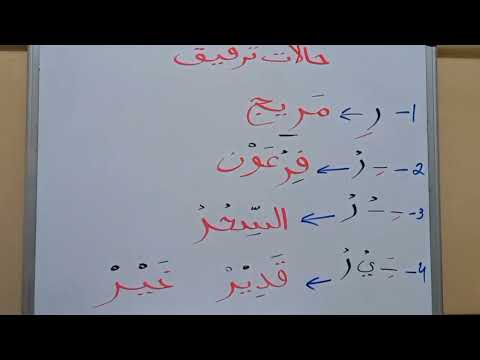 حالات ترقيق
1- رِ ← مَرِيج
2- ـِ رْ ← فِرْعَوْن
3- ـِ ـْ رْ ← السِّحْرْ
4- ـِ يْ رْ ← قَدِيْرْ خَيْرْ